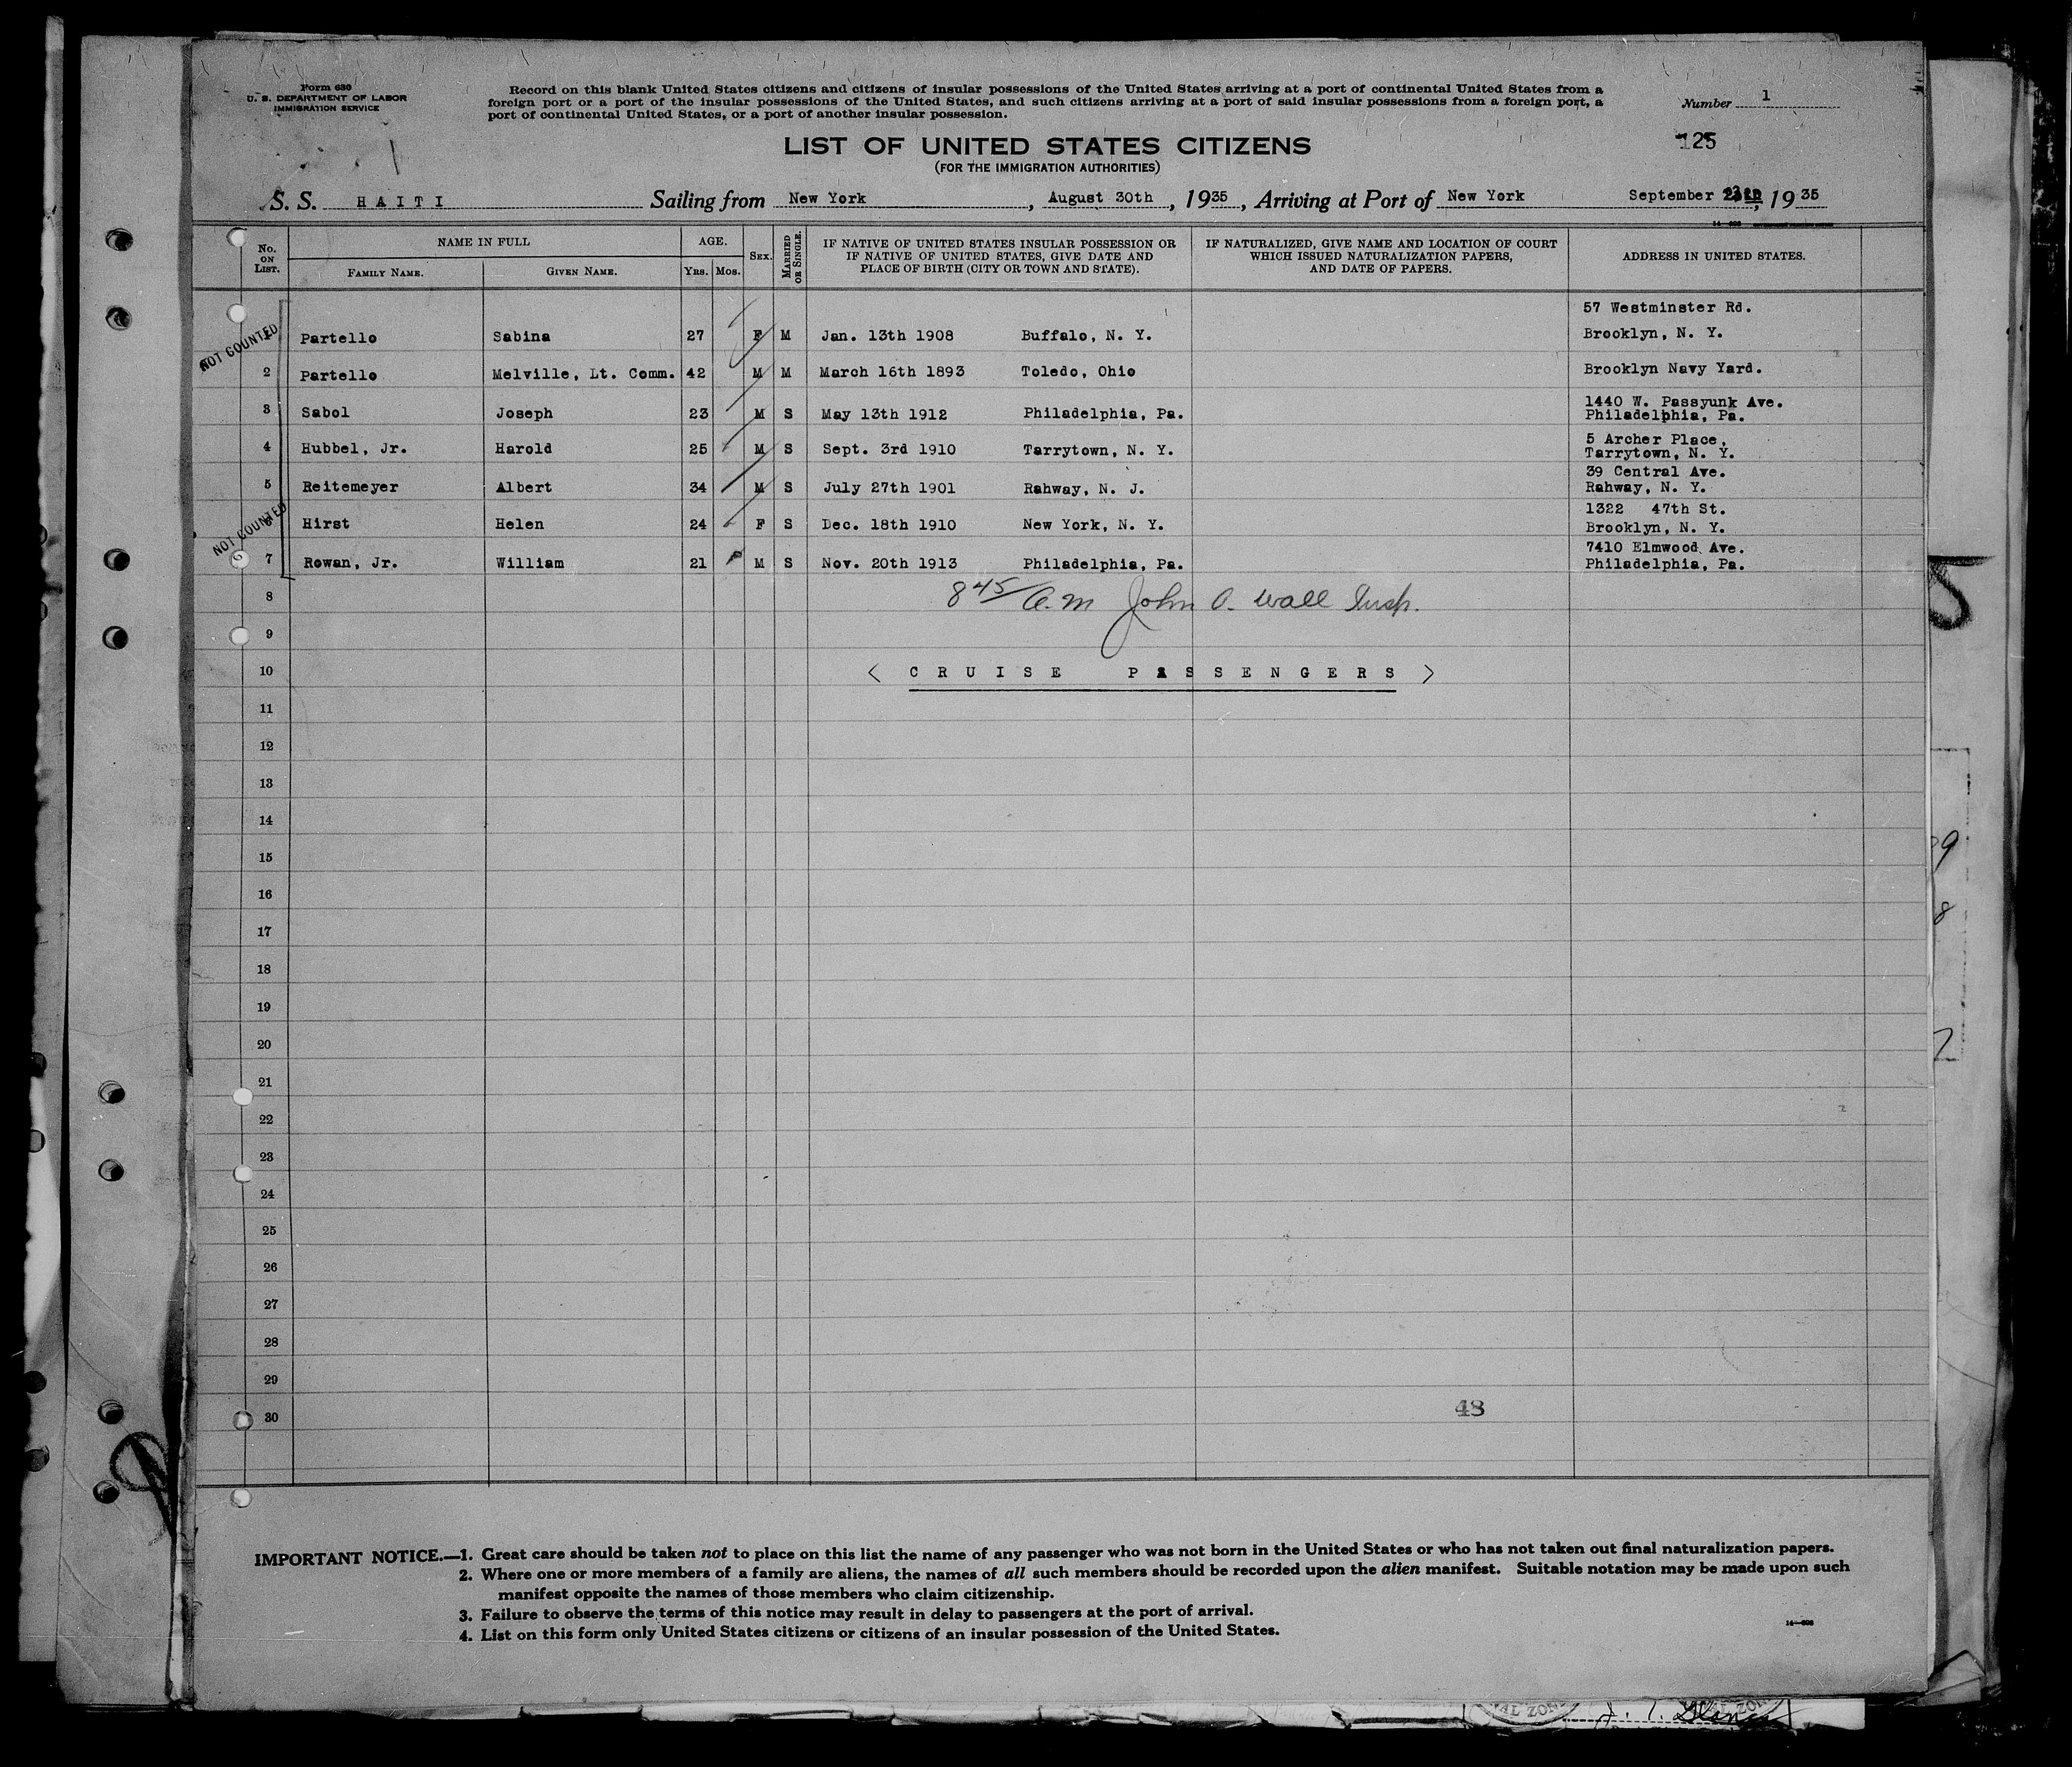 Form 630
U. S. DEPARTMENT OF LABOR
IMMIGRATION SERVICE
Record on this blank United States citizens and citizens of insular possessions of the United States arriving at a port of continental United States from a
foreign port or a port of the insular possessions of the United States, and such citizens arriving at a port of said insular possessions from a foreign port, a
port of continental United States, or a port of another insular possession.
Number 1
125
LIST OF UNITED STATES CITIZENS
(FOR THE IMMIGRATION AUTHORITIES)
S. S. HAITI Sailing from New York, August 30th, 1935, Arriving at Port of New York September 1935
No. ON LIST.
NAME IN FULL
FAMILY NAME. GIVEN NAME.
AGE.
YRS. MOS.
SEX.
MARRIED OR SINGLE.
IF NATIVE OF UNITED STATES INSULAR POSSESSION OR
IF NATIVE OF UNITED STATES, GIVE DATE AND
PLACE OF BIRTH (CITY OR TOWN AND STATE).
IF NATURALIZED, GIVE NAME AND LOCATION OF COURT
WHICH ISSUED NATURALIZATION PAPERS,
AND DATE OF PAPERS.
ADDRESS IN UNITED STATES.
57 Westminster Rd.
NOT COUNTED
Partello Sabina 27 F M Jan. 13th 1908 Buffalo, N. Y. Brooklyn, N. Y.
2 Partello Melville, Lt. Comm. 42 M M March 16th 1893 Toledo, Ohio Brooklyn Navy Yard.
1440 W. Passyunk Ave.
3 Sabol Joseph 23 M S May 13th 1912 Philadelphia, Pa. Philadelphia, Pa.
5 Archer Place,
4 Hubbel, Jr. Harold 25 M S Sept. 3rd 1910 Tarrytown, N. Y. Tarrytown, N. Y.
39 Central Ave.
5 Reitemeyer Albert 34 M S July 27th 1901 Rahway, N. J. Rahway, N. Y.
1322 47th St.
NOT COUNTED
6 Hirst Helen 24 F S Dec. 18th 1910 New York, N. Y. Brooklyn, N. Y.
7410 Elmwood Ave.
7 Rowan, Jr. William 21 M S Nov. 20th 1913 Philadelphia, Pa. Philadelphia, Pa.
8 8 45/ A.M John O. Wall Insp.
9
10 < CRUISE PASSENGERS >
11
12
13
14
15
16
17
18
19
20
21
22
23
24
25
26
27
28
29
30
48
IMPORTANT NOTICE.—1. Great care should be taken not to place on this list the name of any passenger who was not born in the United States or who has not taken out final naturalization papers.
2. Where one or more members of a family are aliens, the names of all such members should be recorded upon the alien manifest. Suitable notation may be made upon such
manifest opposite the names of those members who claim citizenship.
3. Failure to observe the terms of this notice may result in delay to passengers at the port of arrival.
4. List on this form only United States citizens or citizens of an insular possession of the United States.
5
9
8